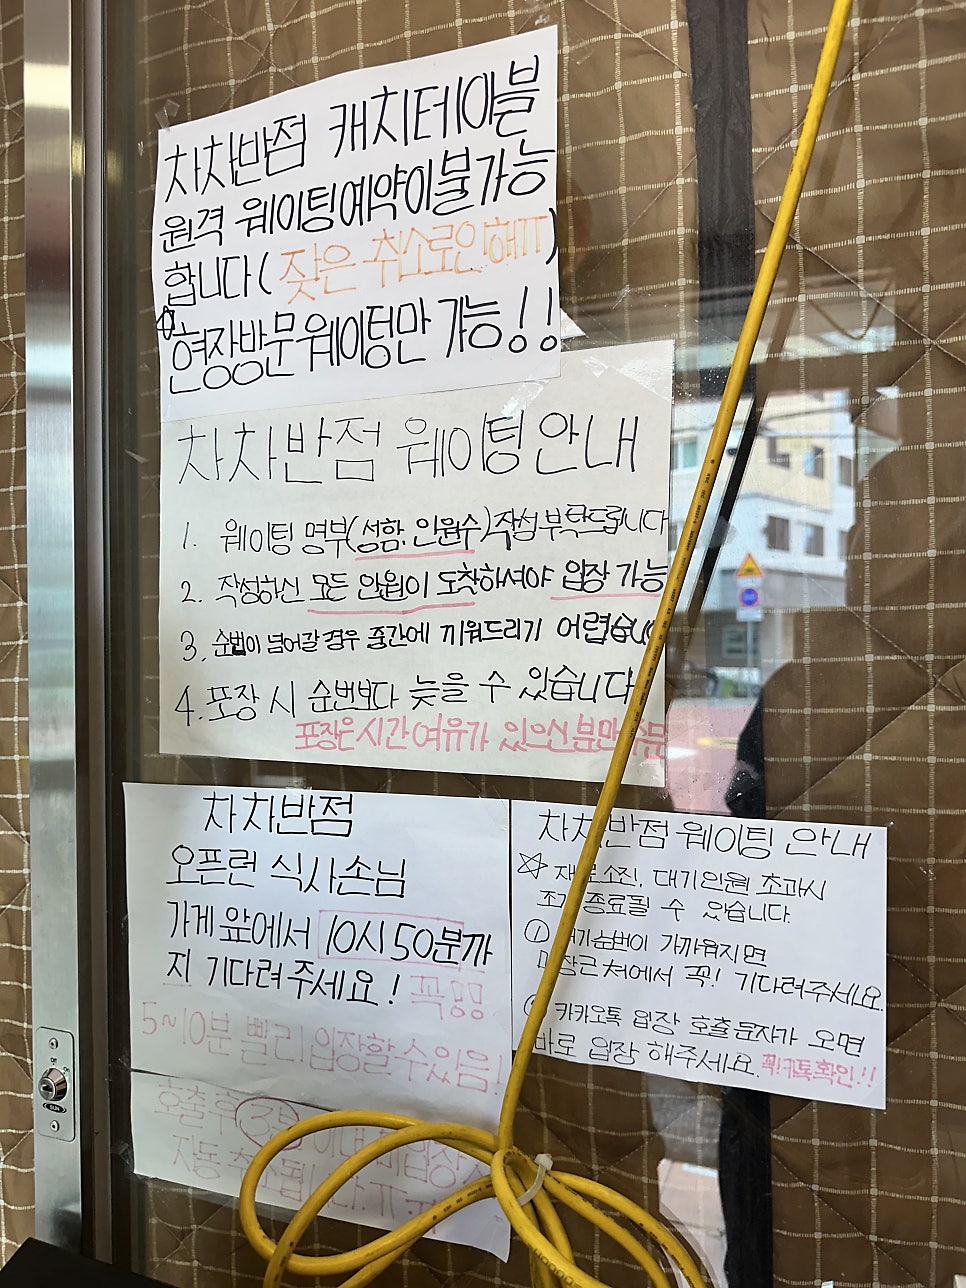 차차반점 캐치테이블
원격 웨이팅예약이불가능
합니다( 잦은 취소로인해ㅠ)
☆현장방문웨이팅만 가능!!
차차반점 웨이팅안내
1. 웨이팅 명부(성함, 인원수)작성부탁드립니다
2. 작성하신 모든 인원이 도착하셔야 입장 가능
3. 순번이 넘어갈 경우 중간에 끼워드리기 어렵습니다
4. 포장 시 순번보다 늦을 수 있습니다
포장은시간여유가 있으신분만
차차반점
오픈런 식사손님
가게 앞에서 10시 50분까
지 기다려주세요! 꼭
5~10분 빨리입장할수있음!
호출후 3분
자동
차차반점 웨이팅 안내
☆ 재료소진, 대기인원 초과시
조기 종료될 수 있습니다
① 대기순번이 가까워지면
매장근처에서 꼭! 기다려주세요
카카오톡 입장 호출문자가 오면
바로 입장 해주세요. 꼭!카톡확인!!
SUN